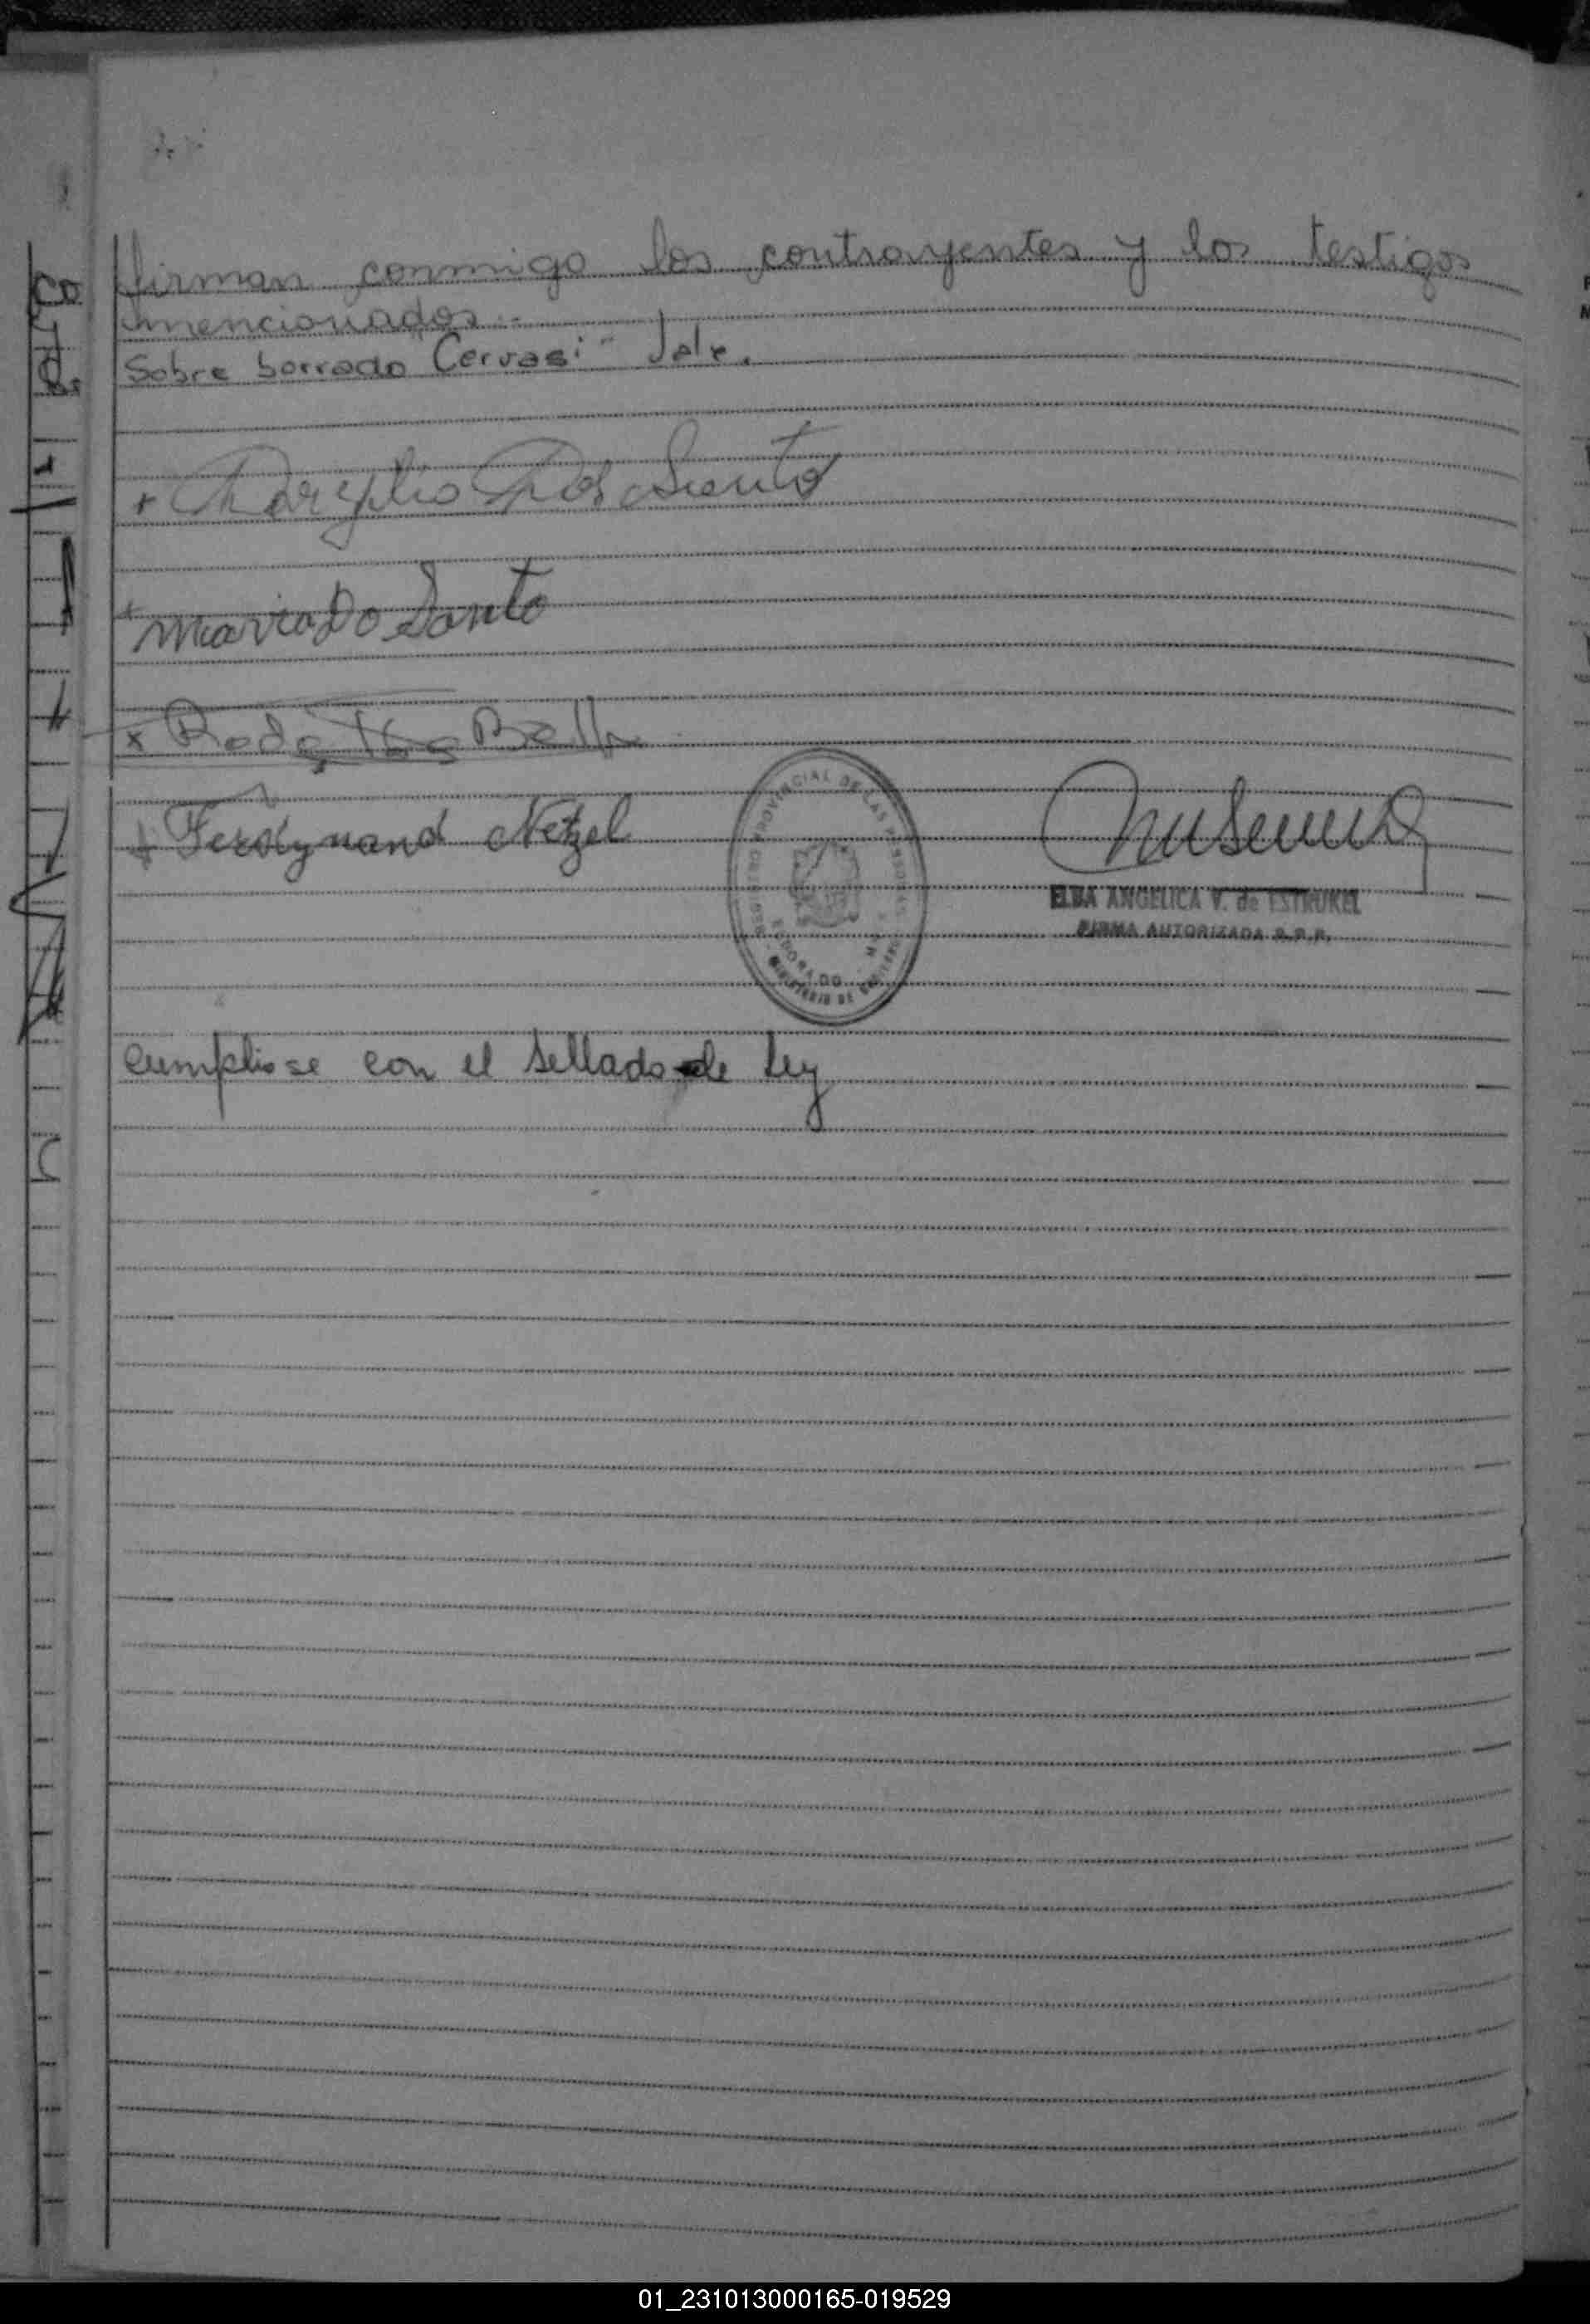 firman conmigo los contrayentes y los testigos
mencionados.-
Sobre borrado "Cervasi" Vale.
Dos Santo
Maria Do Santo
Ferdynand Netzel
REGISTRO PROVINCIAL DE LAS PERSONAS
ELDORADO
MINISTERIO DE GOBIERNO
ELBA ANGELICA V. de ESTRUKEL
FIRMA AUTORIZADA R.P.P.
Cumpliose con el sellado de Ley
01_231013000165-019529